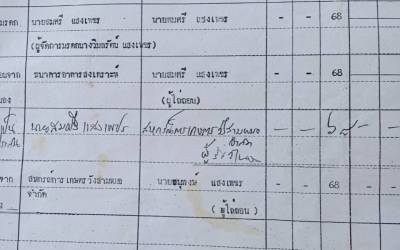 มรดก นายสมศรี แสงเพชร นายสมศรี แสงเพชร - - 68
(ผู้จัดการมรดกนางวิมลรัตน์ แสงเพชร)
จาก ธนาคารอาคารสงเคราะห์ นายสมศรี แสงเพชร - - 68
(ผู้ไถ่ถอน)
นายสมศรี แสงเพชร สหกรณ์การเกษตร - - ๖๘ -
จำกัด
จาก สหกรณ์การเกษตรวังสามหมอ แสงเพชร - - 68
จำกัด (ผู้ไถ่ถอน)